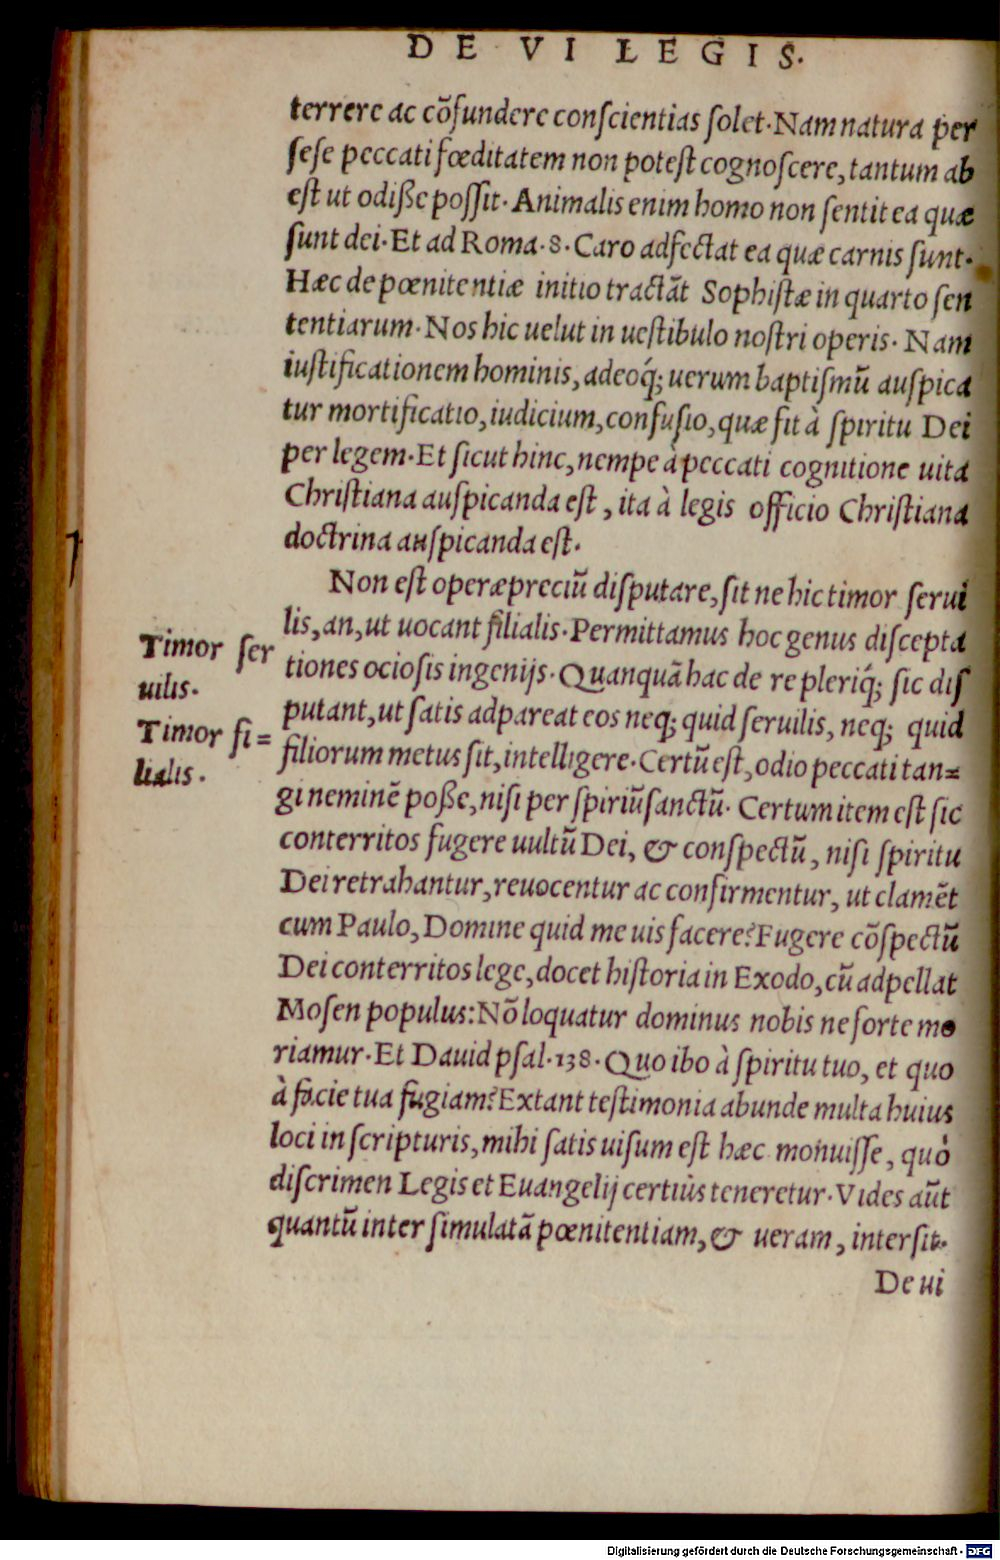 DE VI LEGIS.
terrere ac cõfundere conſcientias ſolet. Nam natura per
ſeſe peccati fœditatem non poteſt cognoſcere, tantum ab
eſt ut odiße poſſit. Animalis enim homo non ſentit ea quæ
ſunt dei. Et ad Roma. 8. Caro adfectat ea quæ carnis ſunt.
Hæc de pœnitentiæ initio tractãt Sophiſtæ in quarto ſen
tentiarum. Nos hic uelut in ueſtibulo noſtri operis. Nam
iuſtificationem hominis, adeoq́; uerum baptiſmũ auſpica
tur mortificatio, iudicium, confuſio, quæ fit à ſpiritu Dei
per legem. Et ſicut hinc, nempe à peccati cognitione uita
Chriſtiana auſpicanda eſt, ita à legis officio Chriſtiana
doctrina auſpicanda eſt.
Non eſt operæpreciũ diſputare, ſit ne hic timor ſerui
lis, an, ut uocant filialis. Permittamus hoc genus diſcepta
tiones ocioſis ingenijs. Quanquã hac de re pleriq́; ſic diſ
putant, ut ſatis adpareat eos neq; quid ſeruilis, neq; quid
filiorum metus ſit, intelligere. Certũ eſt, odio peccati tan=
gi neminẽ poße, niſi per ſpiriũſanctũ. Certum item eſt ſic
conterritos fugere uultũ Dei, & conſpectũ, niſi ſpiritu
Dei retrahantur, reuocentur ac confirmentur, ut clamẽt
cum Paulo, Domine quid me uis facere? Fugere cõſpectũ
Dei conterritos lege, docet hiſtoria in Exodo, cũ adpellat
Moſen populus: Nõ loquatur dominus nobis ne forte mo
riamur. Et Dauid pſal. 138. Quo ibo à ſpiritu tuo, et quo
à facie tua fugiam? Extant teſtimonia abunde multa huius
loci in ſcripturis, mihi ſatis uiſum eſt hæc monuiſſe, quò
diſcrimen Legis et Euangelij certiùs teneretur. Vides aũt
quantũ inter ſimulatã pœnitentiam, & ueram, interſit.
De ui
Timor ſer
uilis.
Timor fi=
lialis.
Digitalisierung gefördert durch die Deutsche Forschungsgemeinschaft - DFG